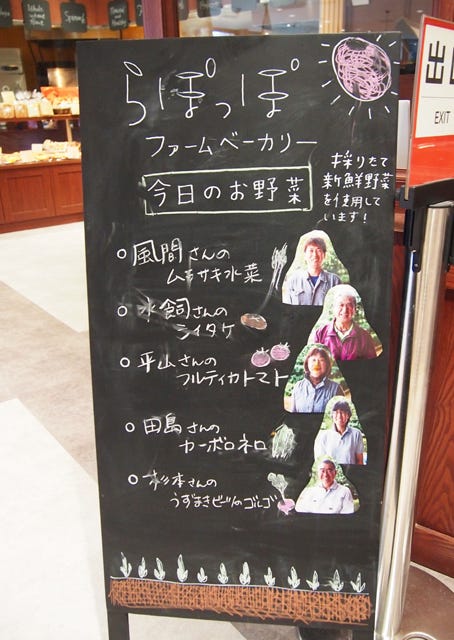 らぽっぽ
ファームベーカリー
今日のお野菜
採りたて
新鮮野菜
を使用して
います!
○風間さんの
ムラサキ水菜
○水飼さんの
シイタケ
○平山さんの
フルティカトマト
○田島さんの
カーボロネロ
○杉本さんの
うずまきビーツのゴルゴ
出
EXIT